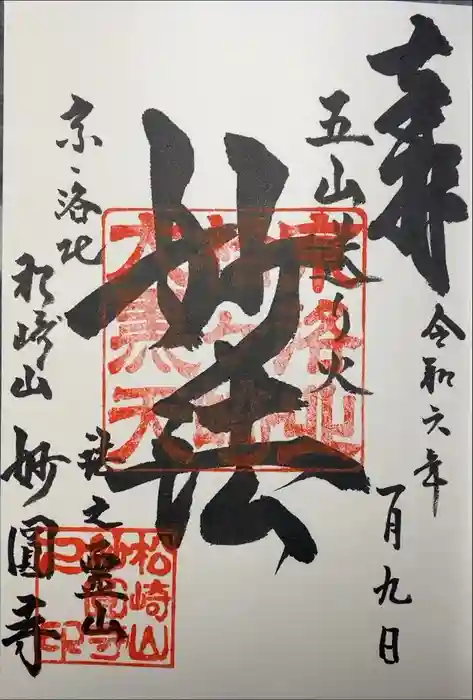 奉拝
令和六年
一月九日
五山送り火
妙法
京・洛北
松崎山
妙圓寺
之霊山
京洛北
松ヶ崎
大黒天
松崎山
妙圓寺
之印